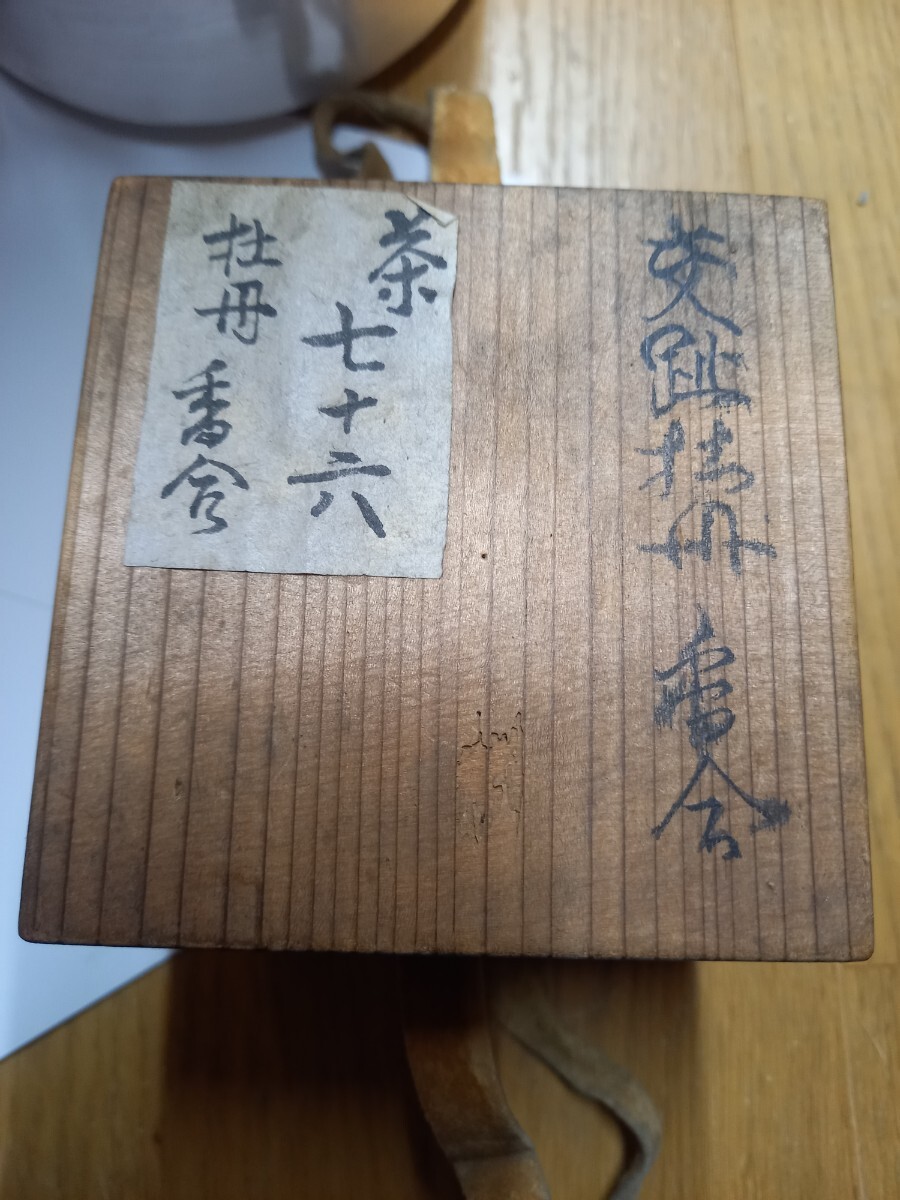 交趾牡丹 香合
茶
七十六
牡丹 香合